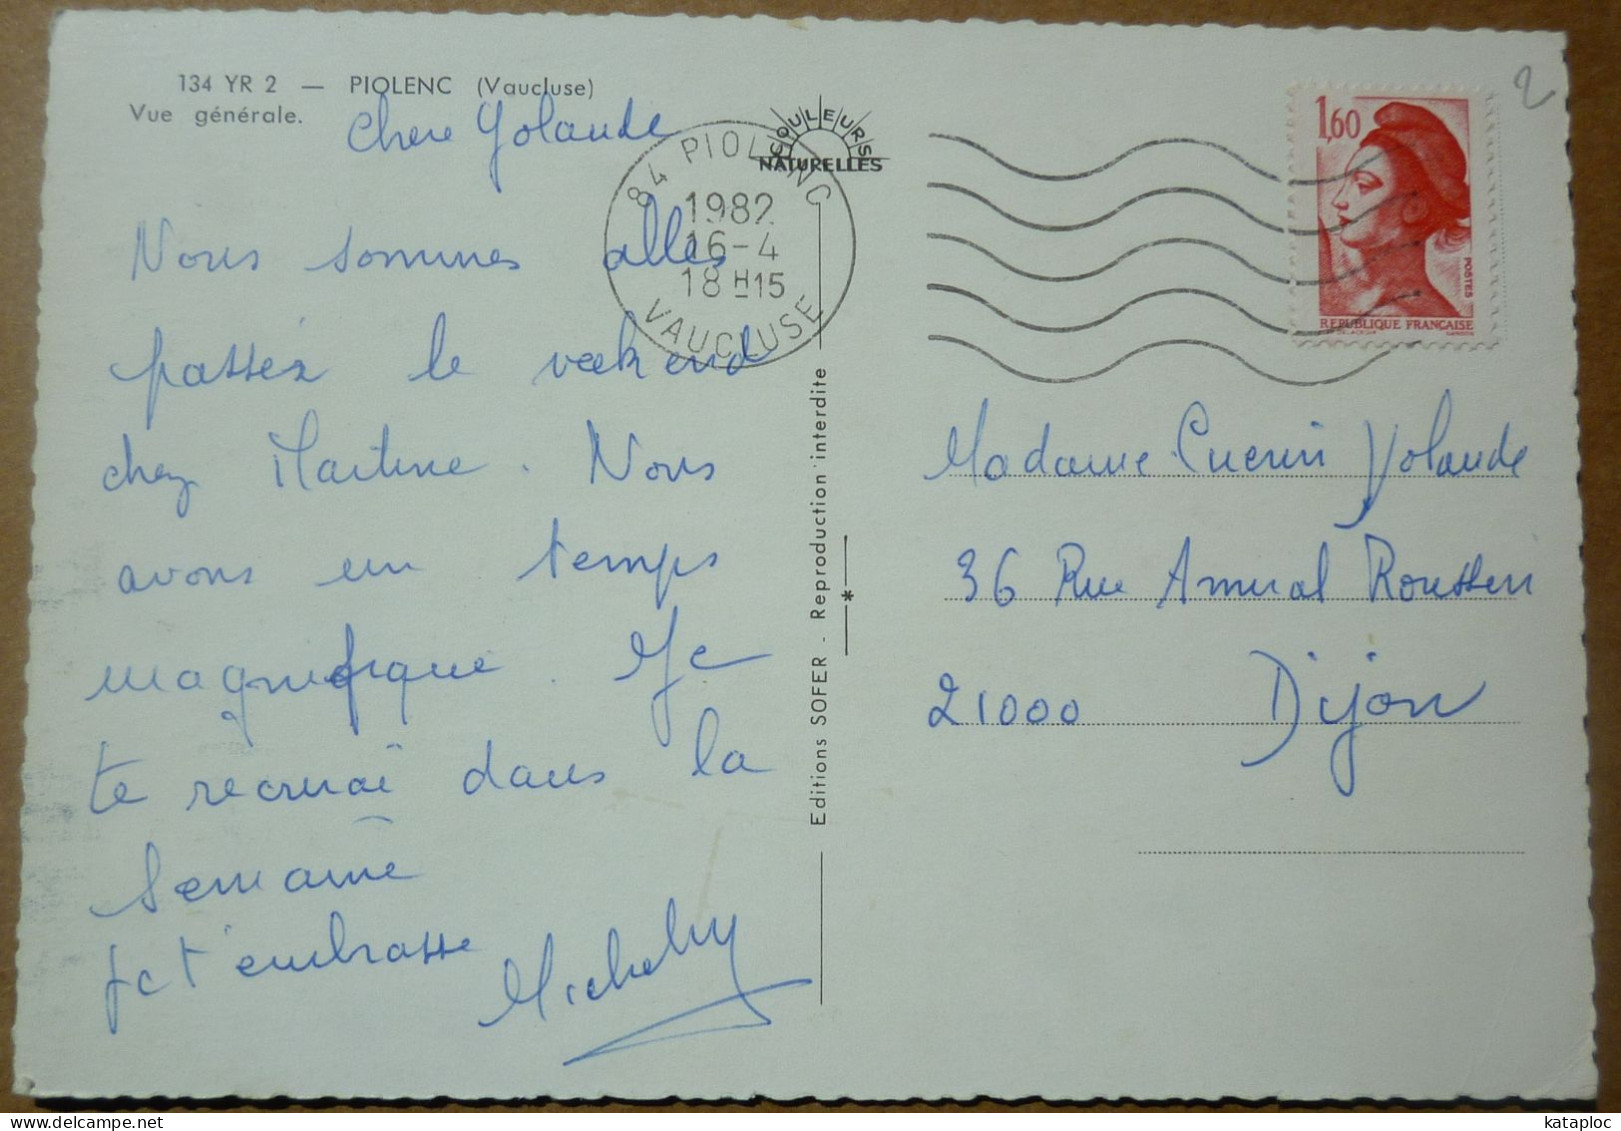 134 YR 2 — PIOLENC (Vaucluse)
Vue générale.
Chere Yolande
Nous sommes allés
passéz le weekend
chez Martine. Nous
avons un temps
magnifique. Je
te recrirai dans la
semaine
je t'embrasse
COULEURS
NATURELLES
84 PIOLENC
1982
16-4
18H15
VAUCLUSE
Editions SOFER - Reproduction interdite
1,60
POSTES
REPUBLIQUE FRANCAISE
2
Madame Yolande
36 Rue Amiral Roussin
21000 Dijon
kataploc